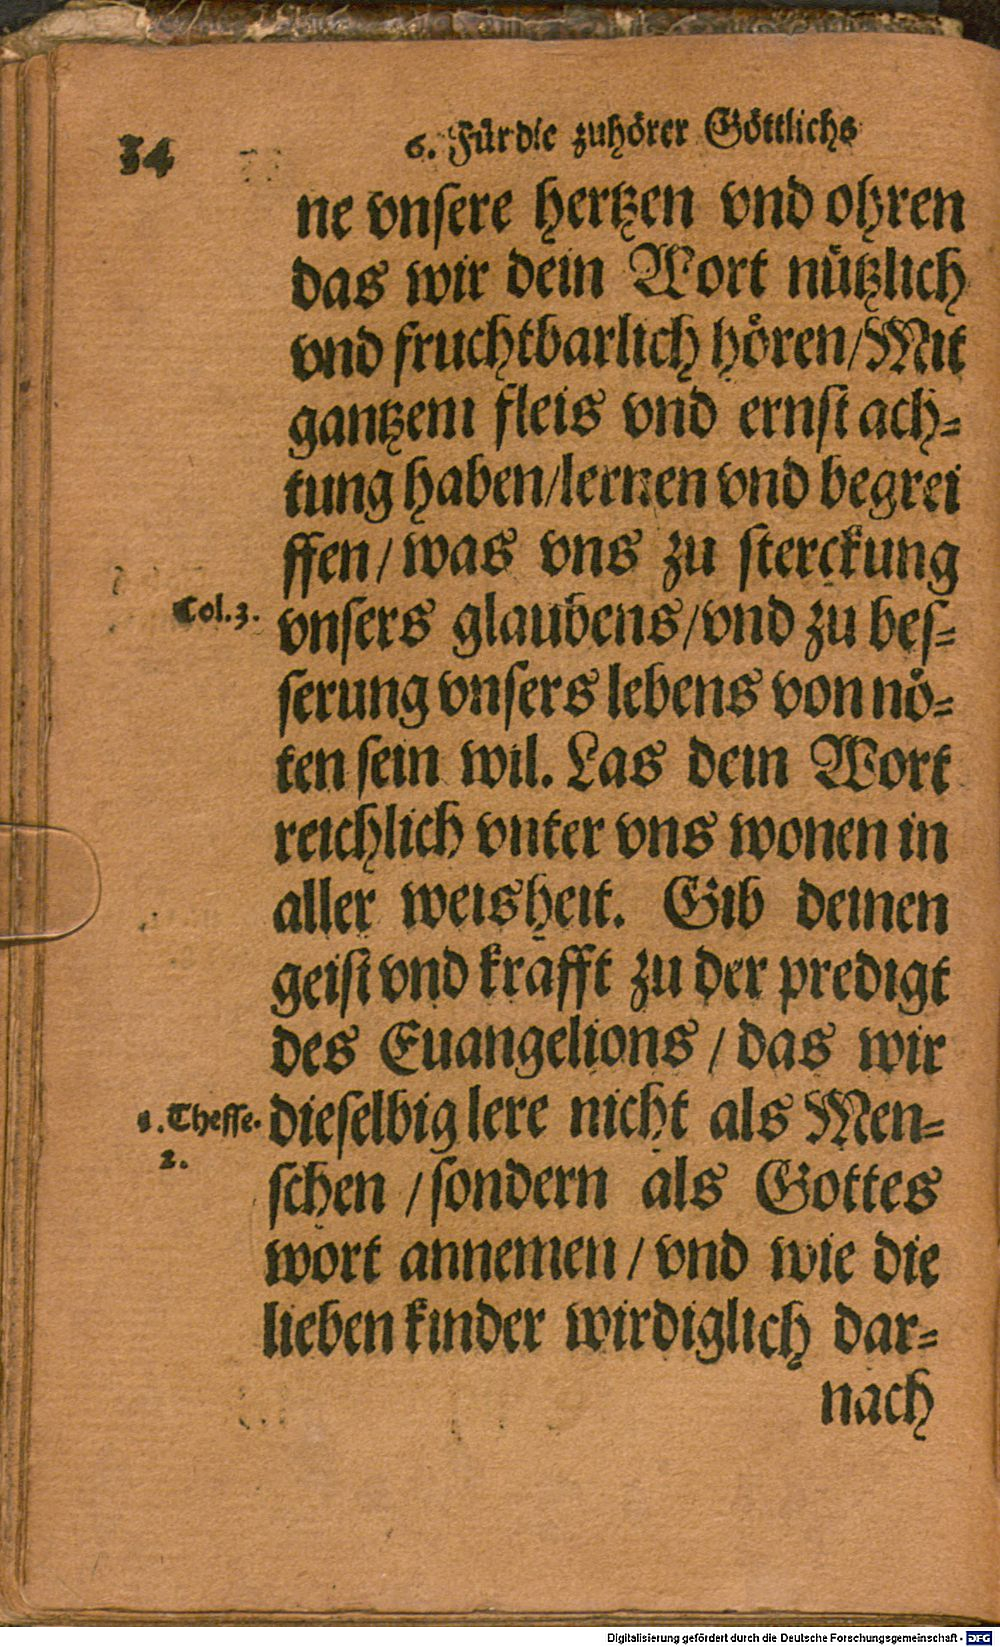 34
6. Für die zuhörer Göttlichs
ne vnsere hertzen vnd ohren
das wir dein Wort nützlich
vnd fruchtbarlich hören/Mit
gantzem fleis vnd ernst ach=
tung haben/lernen vnd begrei
ffen/ was vns zu sterckung
Col.3. vnsers glaubens/vnd zu bes=
serung vnsers lebens von nö=
ten sein wil. Las dein Wort
reichlich vnter vns wonen in
aller weisheit. Gib deinen
geist vnd krafft zu der predigt
des Euangelions / das wir
1.Thesse. dieselbig lere nicht als Men=
2.
schen / sondern als Gottes
wort annemen / vnd wie die
lieben kinder wirdiglich dar=
nach
Digitalisierung gefördert durch die Deutsche Forschungsgemeinschaft - DFG